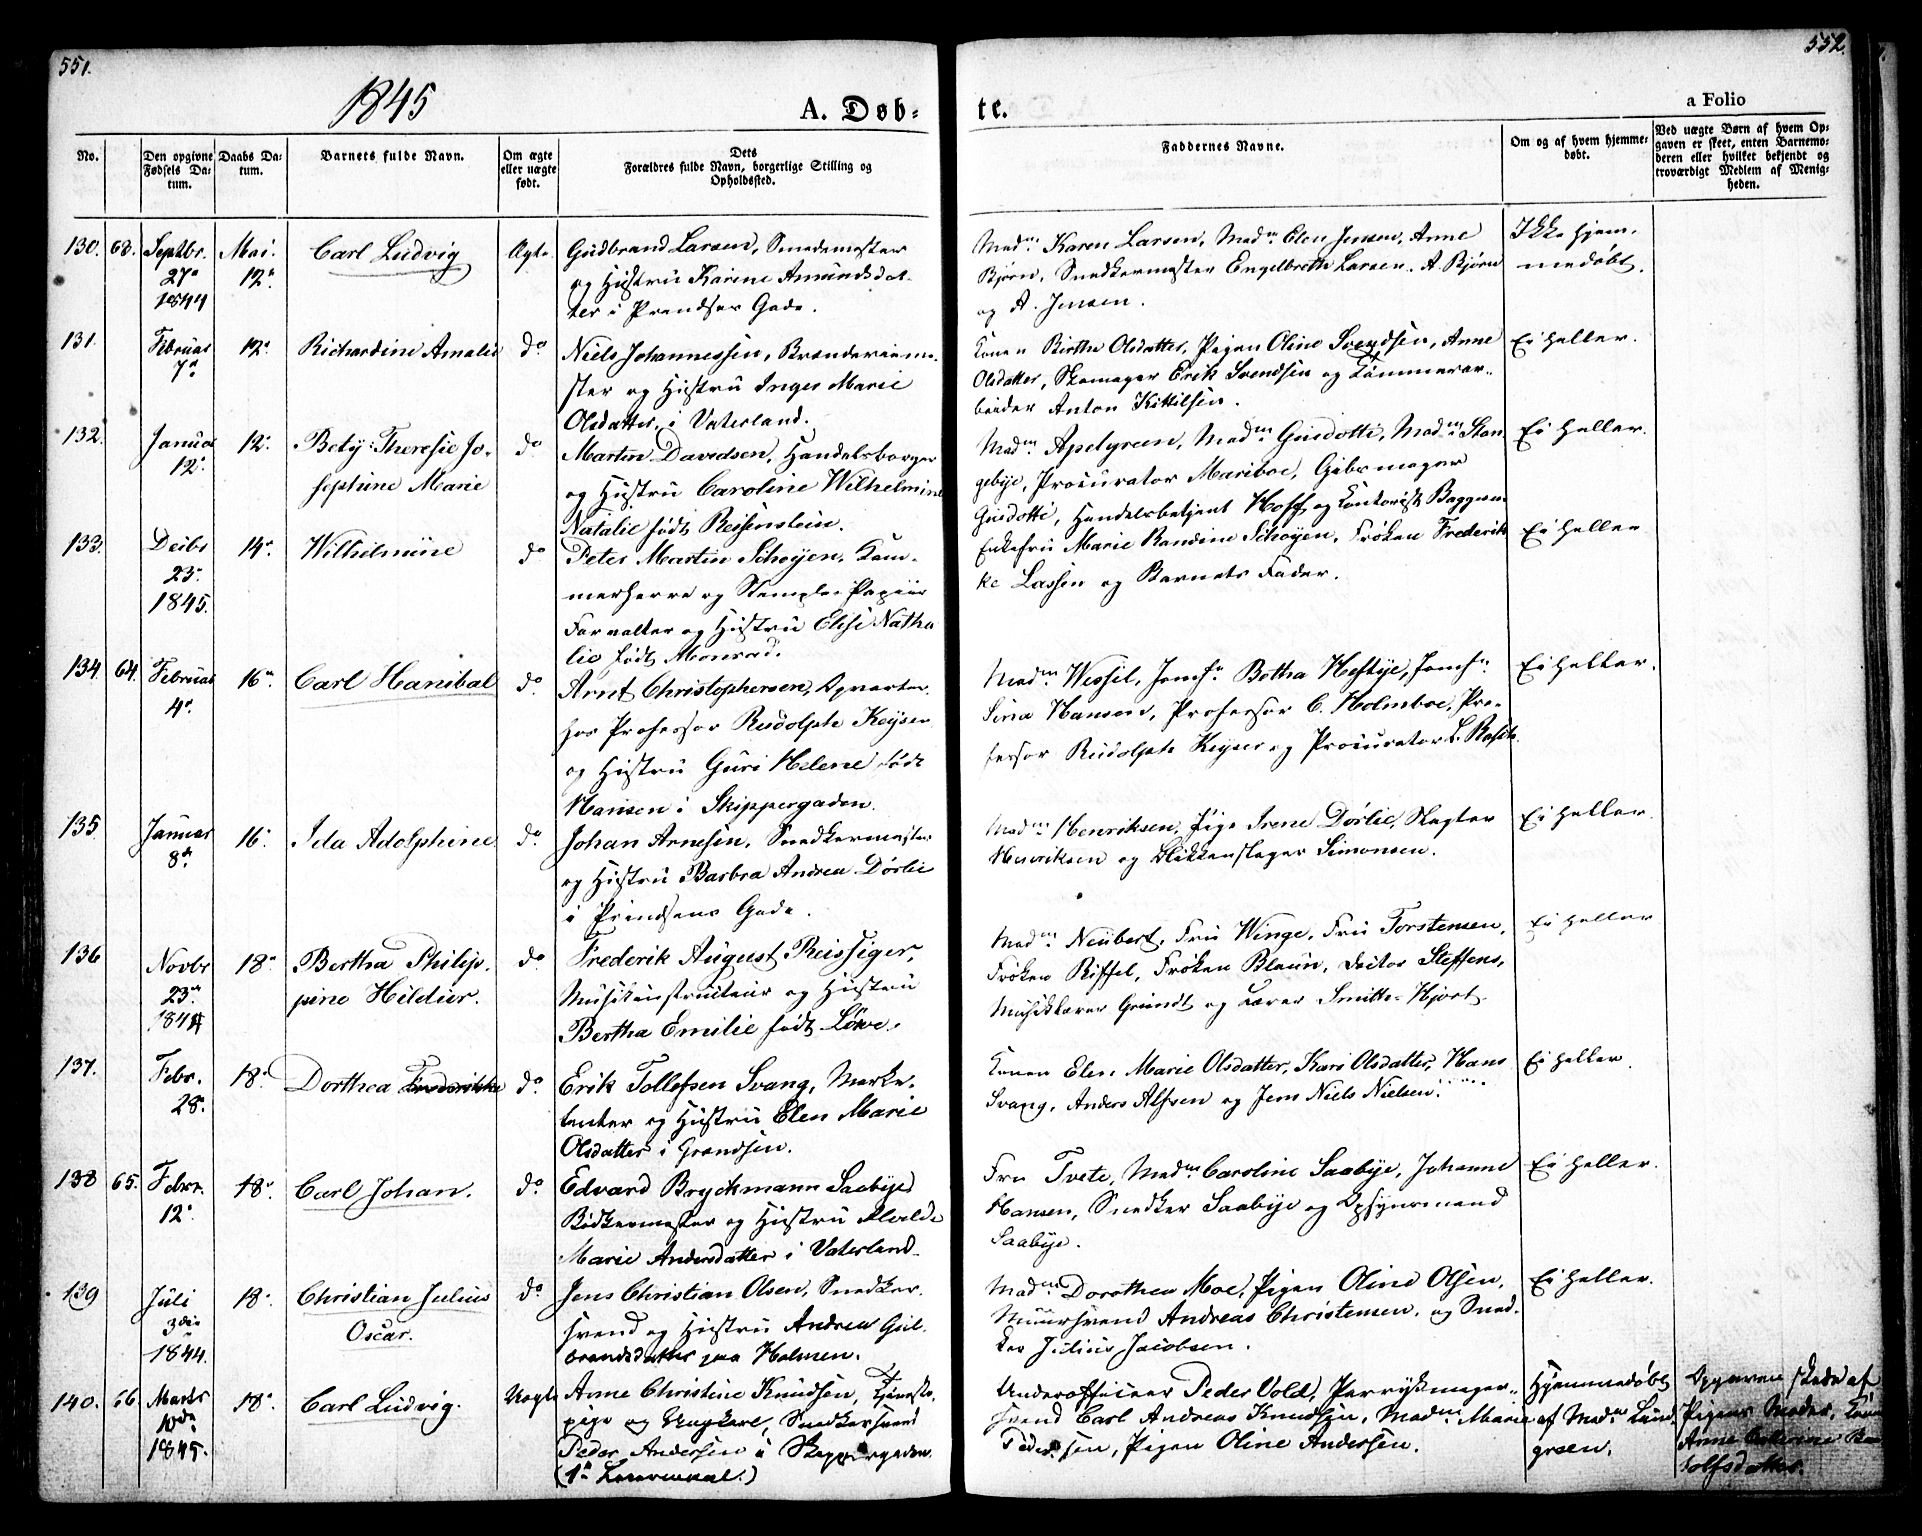 551.
552.
1845
A. Døb-
te.
a Folio
No.
Den opgivne Fødsels Datum.
Daabs Datum.
Barnets fulde Navn.
Om ægte eller uægte født.
Dets Forældres fulde Navn, borgerlige Stilling og Opholdssted.
Faddernes Navne.
Om og af hvem hjemmedøbt.
Ved uægte Børn af hvem Opgaven er skeet, enten Barnemoderen eller hvilket bekjendt og troværdigt Medlem af Menigheden.
130. 63. Septbr. 27de 1844
Mai. 12te
Carl Ludvig
Ægte
Gudbrand Larsen, Smedemester
og Hustru Karine Amundsdat-
ter i Prindsens Gade.
Madm. Karen Larsen, Madm. Elen Jensen, Anne
Bjørn, Snedkermester Engelbreth Larsen, A. Bjørn
og A. Jensen.
Ikke hjem-
medøbt.
131. Februar 7de
12te
Richardine Amalie
do
Niels Johannessen, Brænderieme-
ster og Hustru Inger Marie
Olsdatter, i Vaterland.
Konen Birthe Olsdatter, Pigen Oline Svendsen, Anne
Olsdatter, Skomager Erik Svendsen og Tømmerar-
beider Anton Kittilsen.
Ei heller.
132. Januar 12te
12te
Bety Theresie Jo-
sephine Marie
do
Martin Davidsen, Handelsborger
og Hustru Caroline Wilhelmine
Natalie født Reisenstein.
Madm. Apelgreen, Madm. Guidotti, Madm. Stan-
gebye, Procurator Mariboe, Gibsmager
Guidotti, Handelsbetjent Hoff og Contorist
Ei heller.
133. Decbr 23de 1845.
14de
Wilhelmine
do
Peter Martin Schøyen, Kam-
merherre og Stempler Papiir
Forvalter og Hustru Elise Natha
lie født Monrad.
Enkefru Marie Randine Schøyen, Frøken Frederik
ke Lassen og Barnets Fader.
Ei heller
134. 64. Februar 4de
16de
Carl Hanibal
do
Arnt Christophersen, Opvarter
hos Professor Rudolph Keyser
og Hustru Guri Helene født
Hansen i Skippergaden.
Madm. Wessel, Jomfr. Botha Heftye, Jomfr.
Sina Hansen, Professor C. Holmboe, Pro-
fessor Rudolph Keyser og Procurator L. Rasch.
Ei heller.
135 Januar 8de
16de
Ida Adolphine
do
Johan Arnesen, Snedkermester
og Hustru Barbra Andrea Dørlie
i Prindsens Gade.
Madm. Henriksen, Pige Irene Dørlie, Slagter
Henriksen og Blikkenslager Simonsen.
Ei heller.
136 Novbr 23de 1844
18de
Bertha Philip-
pine Hildur.
do
Frederik August Reissiger,
Musikinstructeur og Hustru
Bertha Emilie født Løwe.
Madm. Neubert, Fru Winge, Fru Torstensen,
Frøken Riffel, Frøken Blaun, Doctor Steffens,
Musiklærer Grundt og Lærer Smitt-Hjort.
Ei heller
137. Febr. 28.
18de
Dorthea Frederikke
do
Erik Tollefsen Svang, Marke-
tenter og Hustru Elen Marie
Olsdatter i Grændsen.
Konen Elen Marie Olsdatter, Kari Olsdatter, Hans
Svang, Anders Alfsen og Jens Niels Nielsen.
Ei heller.
138 65. Febr. 12te
18de
Carl Johan.
do
Edvard Bryckmann Saabye
Bødkermester og Hustru Alvilde
Marie Andersdatter i Vaterland.
Fru Tvete, Madm. Caroline Saabye, Johanne
Hansen, Snedker Saabye og Opsynsmand
Saabye.
Ei heller.
139 Juli 3die 1844.
18de
Christian Julius
Oscar.
do
Jens Christian Olsen, Snedker-
svend og Hustru Andrea Gul-
brandsdatter paa Holmen.
Madm. Dorothea Moe, Pigen Oline Olsen,
Muursvend Andreas Christensen, og Sned-
ker Julius Jacobsen.
Ei heller.
140. 66. Marts 10de 1845.
18de
Carl Ludvig.
Uægte
Anne Christine Knudsen, Tjeneste-
pige og Ungkarl, Snedkersvend
Peder Andersen i Skippergaden.
(1ste Leiermaal.)
Underofficeer Peder Vold, Parykmager-
svend Carl Andreas Knudsen, Madm. Marie
Pedersen, Pigen Oline Andersen.
Hjemmedøbt
af Madm. Lund-
green.
Opgaven skede af
Pigens Moder, Kone
Anne